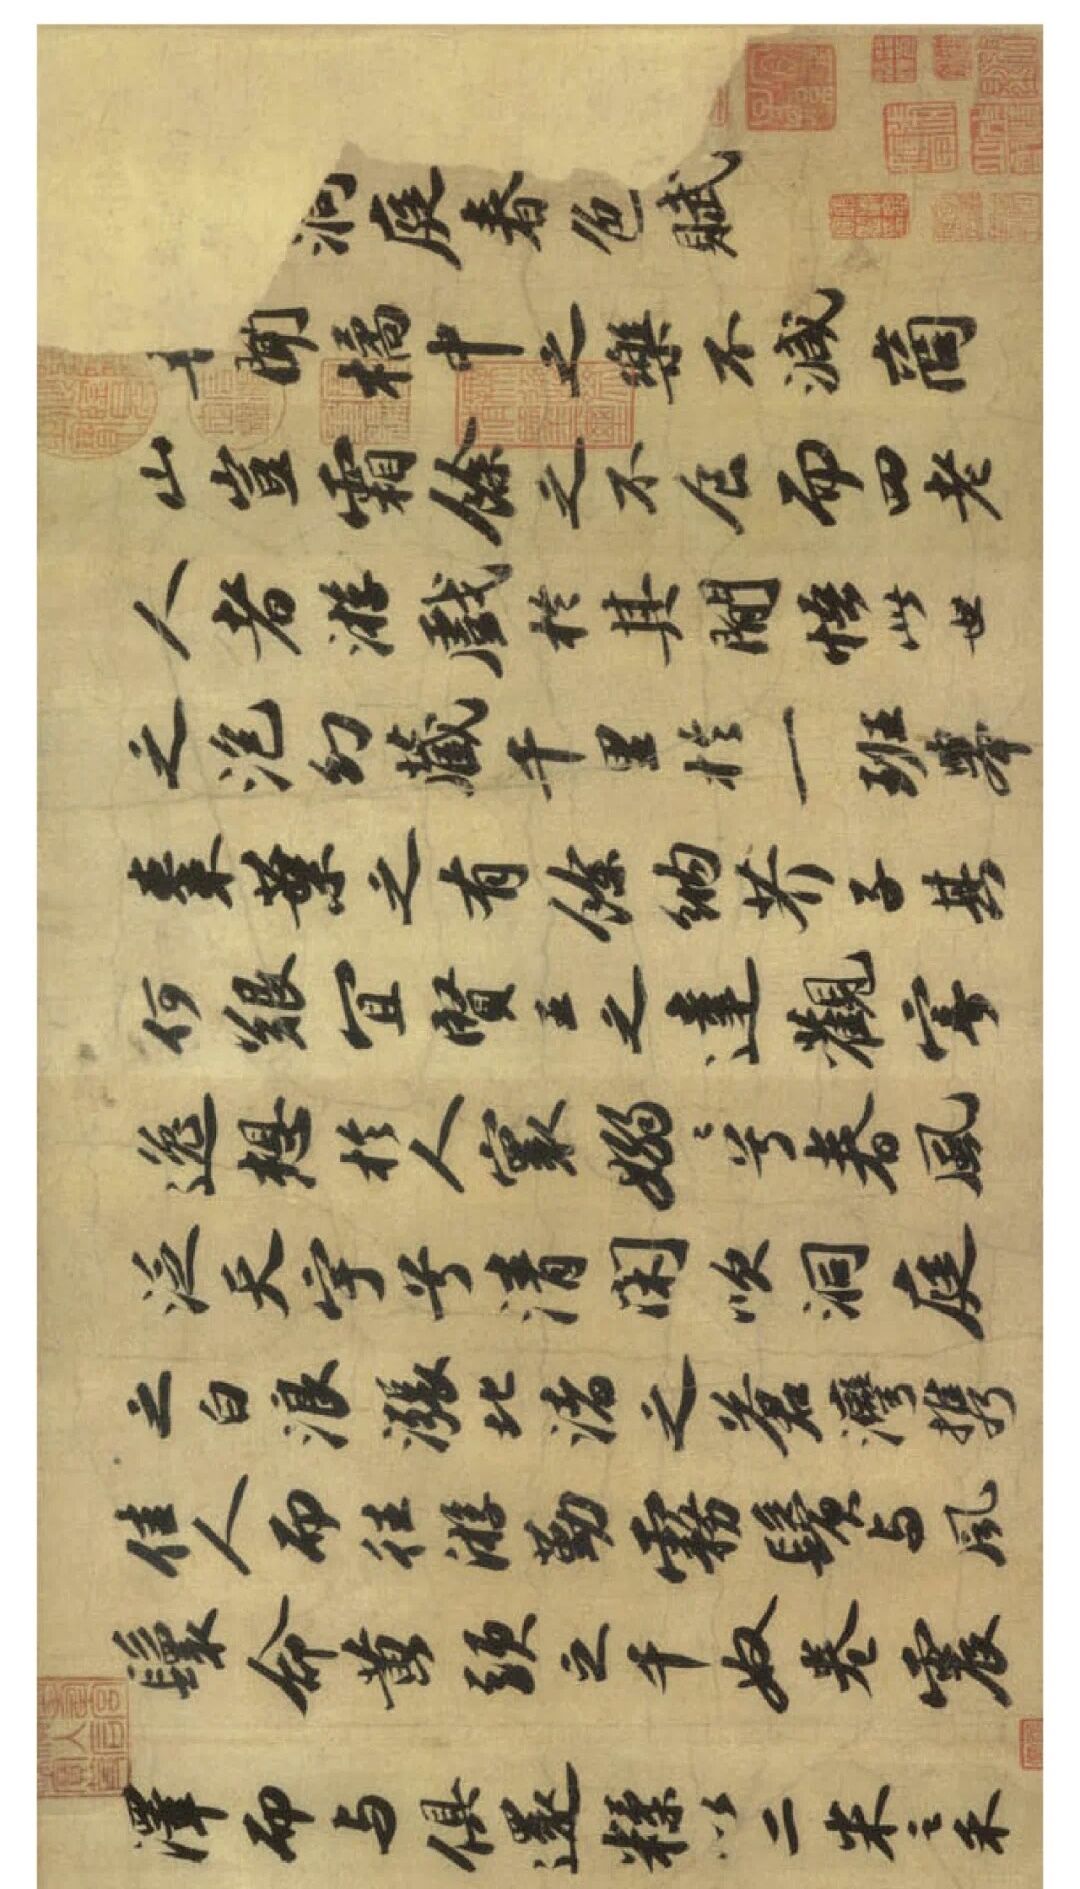 洞庭春色賦
吾聞橘中之樂不減商
山豈霜餘之不食而四老
人者游戲於其間悟此世
之泡幻藏千里於一班舉
棗葉之有餘納芥子其
何艱宜賢王之達觀寄
逸想於人寰嫋〻兮春風
泛天宇兮清閑吹洞庭
之白浪漲北渚之蒼灣攜
佳人而往游勤霧鬢与風
鬟命黃頭之千奴卷震
澤而与俱還糅以二米之禾